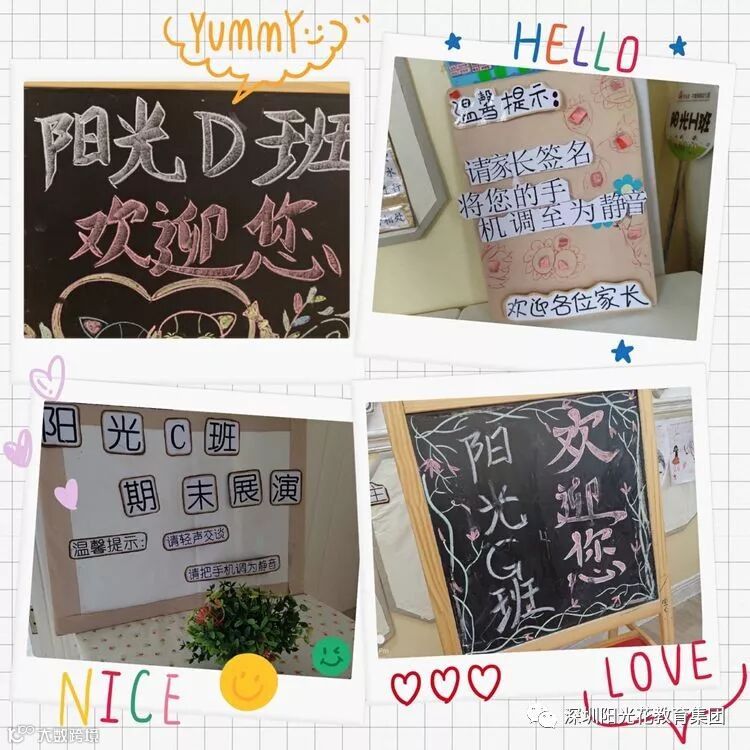 YUMMY
HELLO
阳光D班
欢迎您
温馨提示:
请家长签名
将您的手
机调至为静音
欢迎各位家长
阳光H班
阳光C班
期末展演
温馨提示:
请轻声交谈
请把手机调为静音
欢迎您
阳光G班
NICE
LOVE
深圳阳光花教育集团
大数跨境